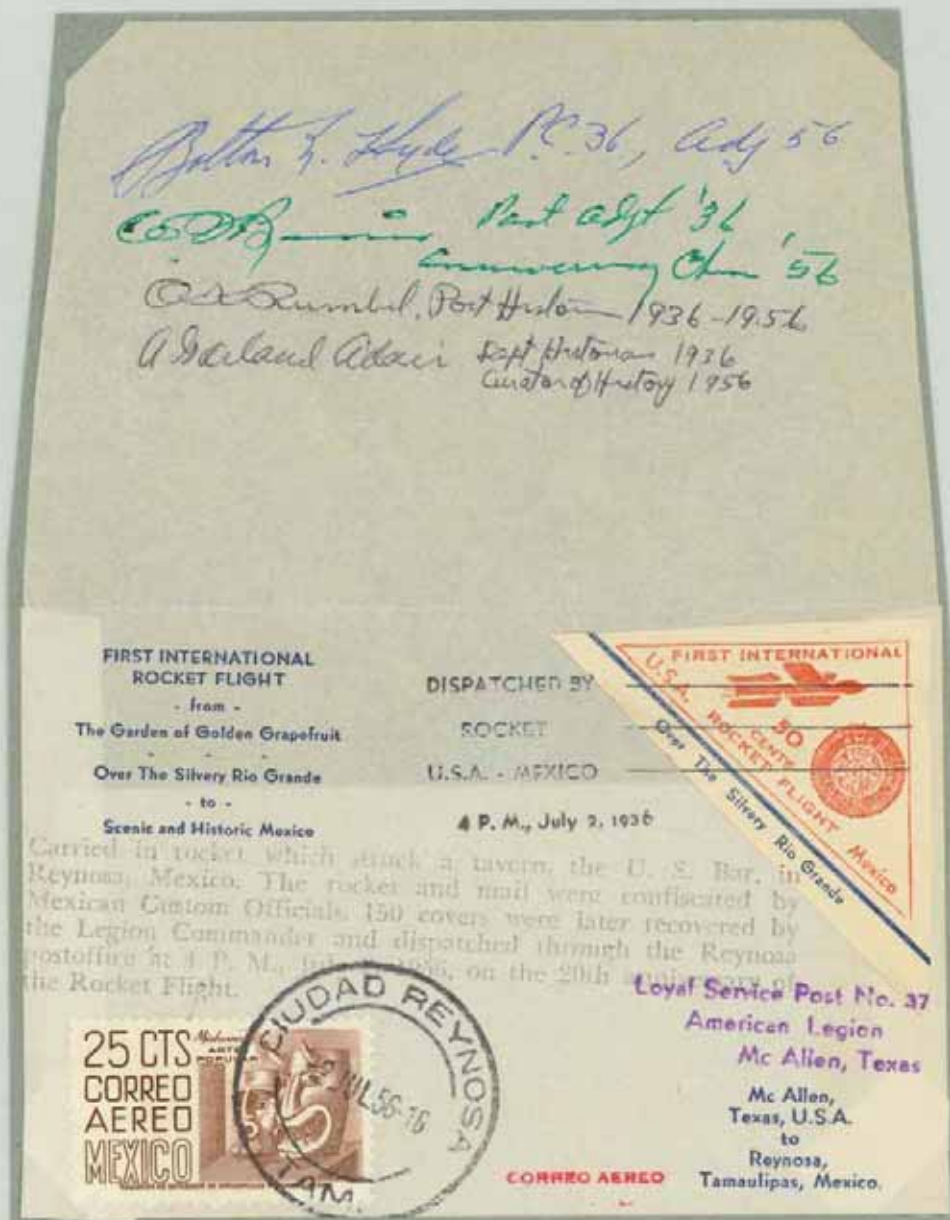 P.C. 36, Adj 56
Post Adjt '36
Anniversary Chm '56
Rumbel, Post Historian 1936-1956
A Garland Adair Dept Historian 1936
Curator of History 1956
FIRST INTERNATIONAL
ROCKET FLIGHT
- from -
The Garden of Golden Grapefruit
Over The Silvery Rio Grande
- to -
Scenic and Historic Mexico
DISPATCHED BY
ROCKET
U.S.A. - MEXICO
4 P. M., July 2, 1936
FIRST INTERNATIONAL
U.S.A. ROCKET FLIGHT Mexico
50
CENTS
Over The Silvery Rio Grande
Carried in rocket which struck a tavern, the U. S. Bar, in
Reynosa, Mexico. The rocket and mail were confiscated by
Mexican Custom Officials. 150 covers were later recovered by
the Legion Commander and dispatched through the Reynosa
postoffice at 4 P. M., on the 20th anniversary of
the Rocket Flight.
Loyal Service Post No. 37
American Legion
Mc Allen, Texas
Mc Allen,
Texas, U.S.A.
to
Reynosa,
Tamaulipas, Mexico.
CORREO AEREO
25 CTS
CORREO
AEREO
MEXICO
ARTE
POPULAR
CIUDAD REYNOSA
JUL 56-16
TAM.